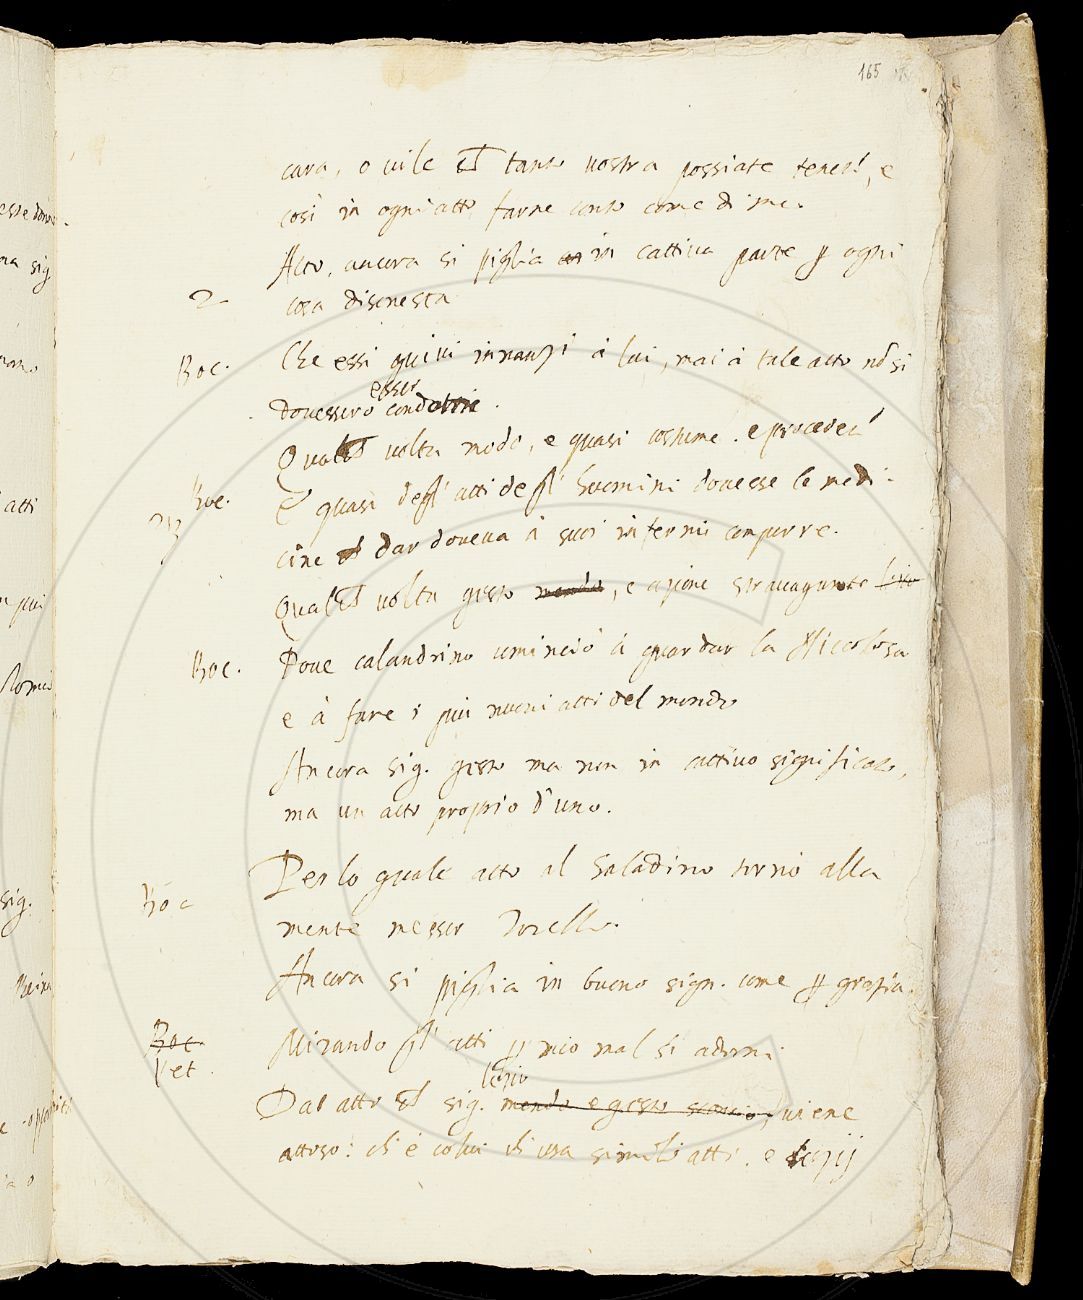 165
cara, o vile ch̃ tanto vostra possiate tenerl', e
così in ogni atto farne conto come di me.
Atto, ancora si piglia in cattiva parte ꝑ ogni
2 cosa disonesta
Boc. Che essi quivi innanzi à lui, mai à tale atto nõ si
esser
dovessero condotti.
Qualch̃ volta modo, e quasi costume. e proceder'
Boc. E quasi degl' atti degl' huomini dovesse le medi-
cine ch̃ dar doveva à suoi infermi comporre.
Qualch̃ volta gesto modo, e azione stravagante
Boc. Dove calandrino cominciò à guardar la Niccolosa
e à fare i più nuovi atti del mondo
Ancora sig. gesto ma non in cattivo significato,
ma un atto proprio d'uno.
Boc Per lo quale atto al Saladino tornò alla
mente messer Torello.
Ancora si piglia in buono sign. come ꝑ grazia.
Boc. Mirando gl' atti ꝑ mio mal si adorni
Pet.
lezio
Dal atto ch̃ sig. modo e gesto viene
attoso: ch' è colui ch' usa simili atti. e lezij